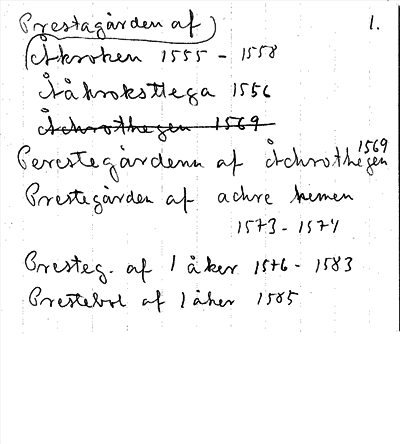 Prestagården af 1.
Åkroken 1555 - 1558
Åtåkroksttega 1556
Åchrothegen 1569
Perestegårdenn af Åchrothegen 1569
Prestegården af achre hemen
1573 - 1574
Presteg. af 1 åker 1576 - 1583
Prestebol af 1 åker 1585